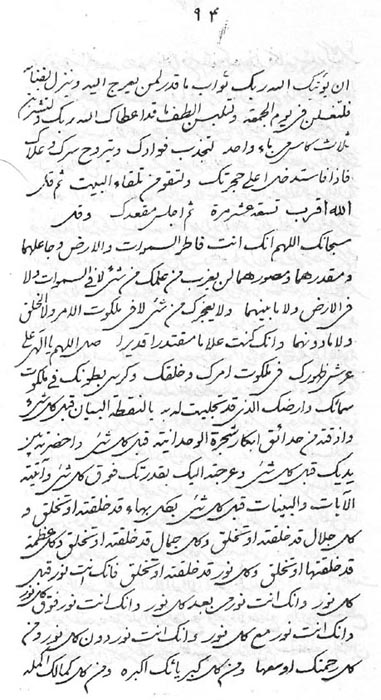 ٩٤
ان يؤتيك الله ربك ثواب ما قدر لمن يعرج اليه وينزل
فلتغسلن فى يوم الجمعة وتلبس الطف ما قد اعطاك الله ربك ولتشربن
ثلاث كأس من ماء واحد لتجذب فوادك وتروح سرك وعلانك
فاذا فاستدخل على حجرتك ولتقومن تلقاء البيت ثم قل
الله اقرب تسعة عشر مرة ثم اجلس مقعدك وقل
سبحانك اللهم انك انت فاطر السموات والارض وجاعلهما
ومقدرهما ومصورهما لن يعزب من علمك من شئ لا فى السموات ولا
فى الارض ولا ما بينهما ولا يعجزك من شئ لا فى ملكوت الامر والخلق
ولا ما دونهما وانك كنت علاما مقتدرا قديرا صل اللهم يا الهى على
عرش ظهورك فى ملكوت امرك وخلقك وكرسى بطونك فى ملكوت
سمائك وارضك الذى قد تجليت له به بالنقطة البيان قبل كل شئ
واذقته من حدائق ابكار شجرة الوحدانية قبل كل شئ واحضرته بين
يديك قبل كل شئ وعرجته اليك بقدرتك فوق كل شئ وآتيته
الآيات والبينات قبل كل شئ بكل بهاء قد خلقته او تخلق و
كل جلال قد خلقته او تخلق وكل جمال قد خلقته او تخلق وكل عظمة
قد خلقتها او تخلق وكل نور قد خلقته او تخلق فانك انت نور قبل
كل نور وانك انت نور بعد كل نور وانك انت نور فوق كل نور
وانك انت نور مع كل نور وانك انت نور دون كل نور ومن
كل رحمتك اوسعها ومن كل كبريائك اكبره ومن كل كمالك اكمله